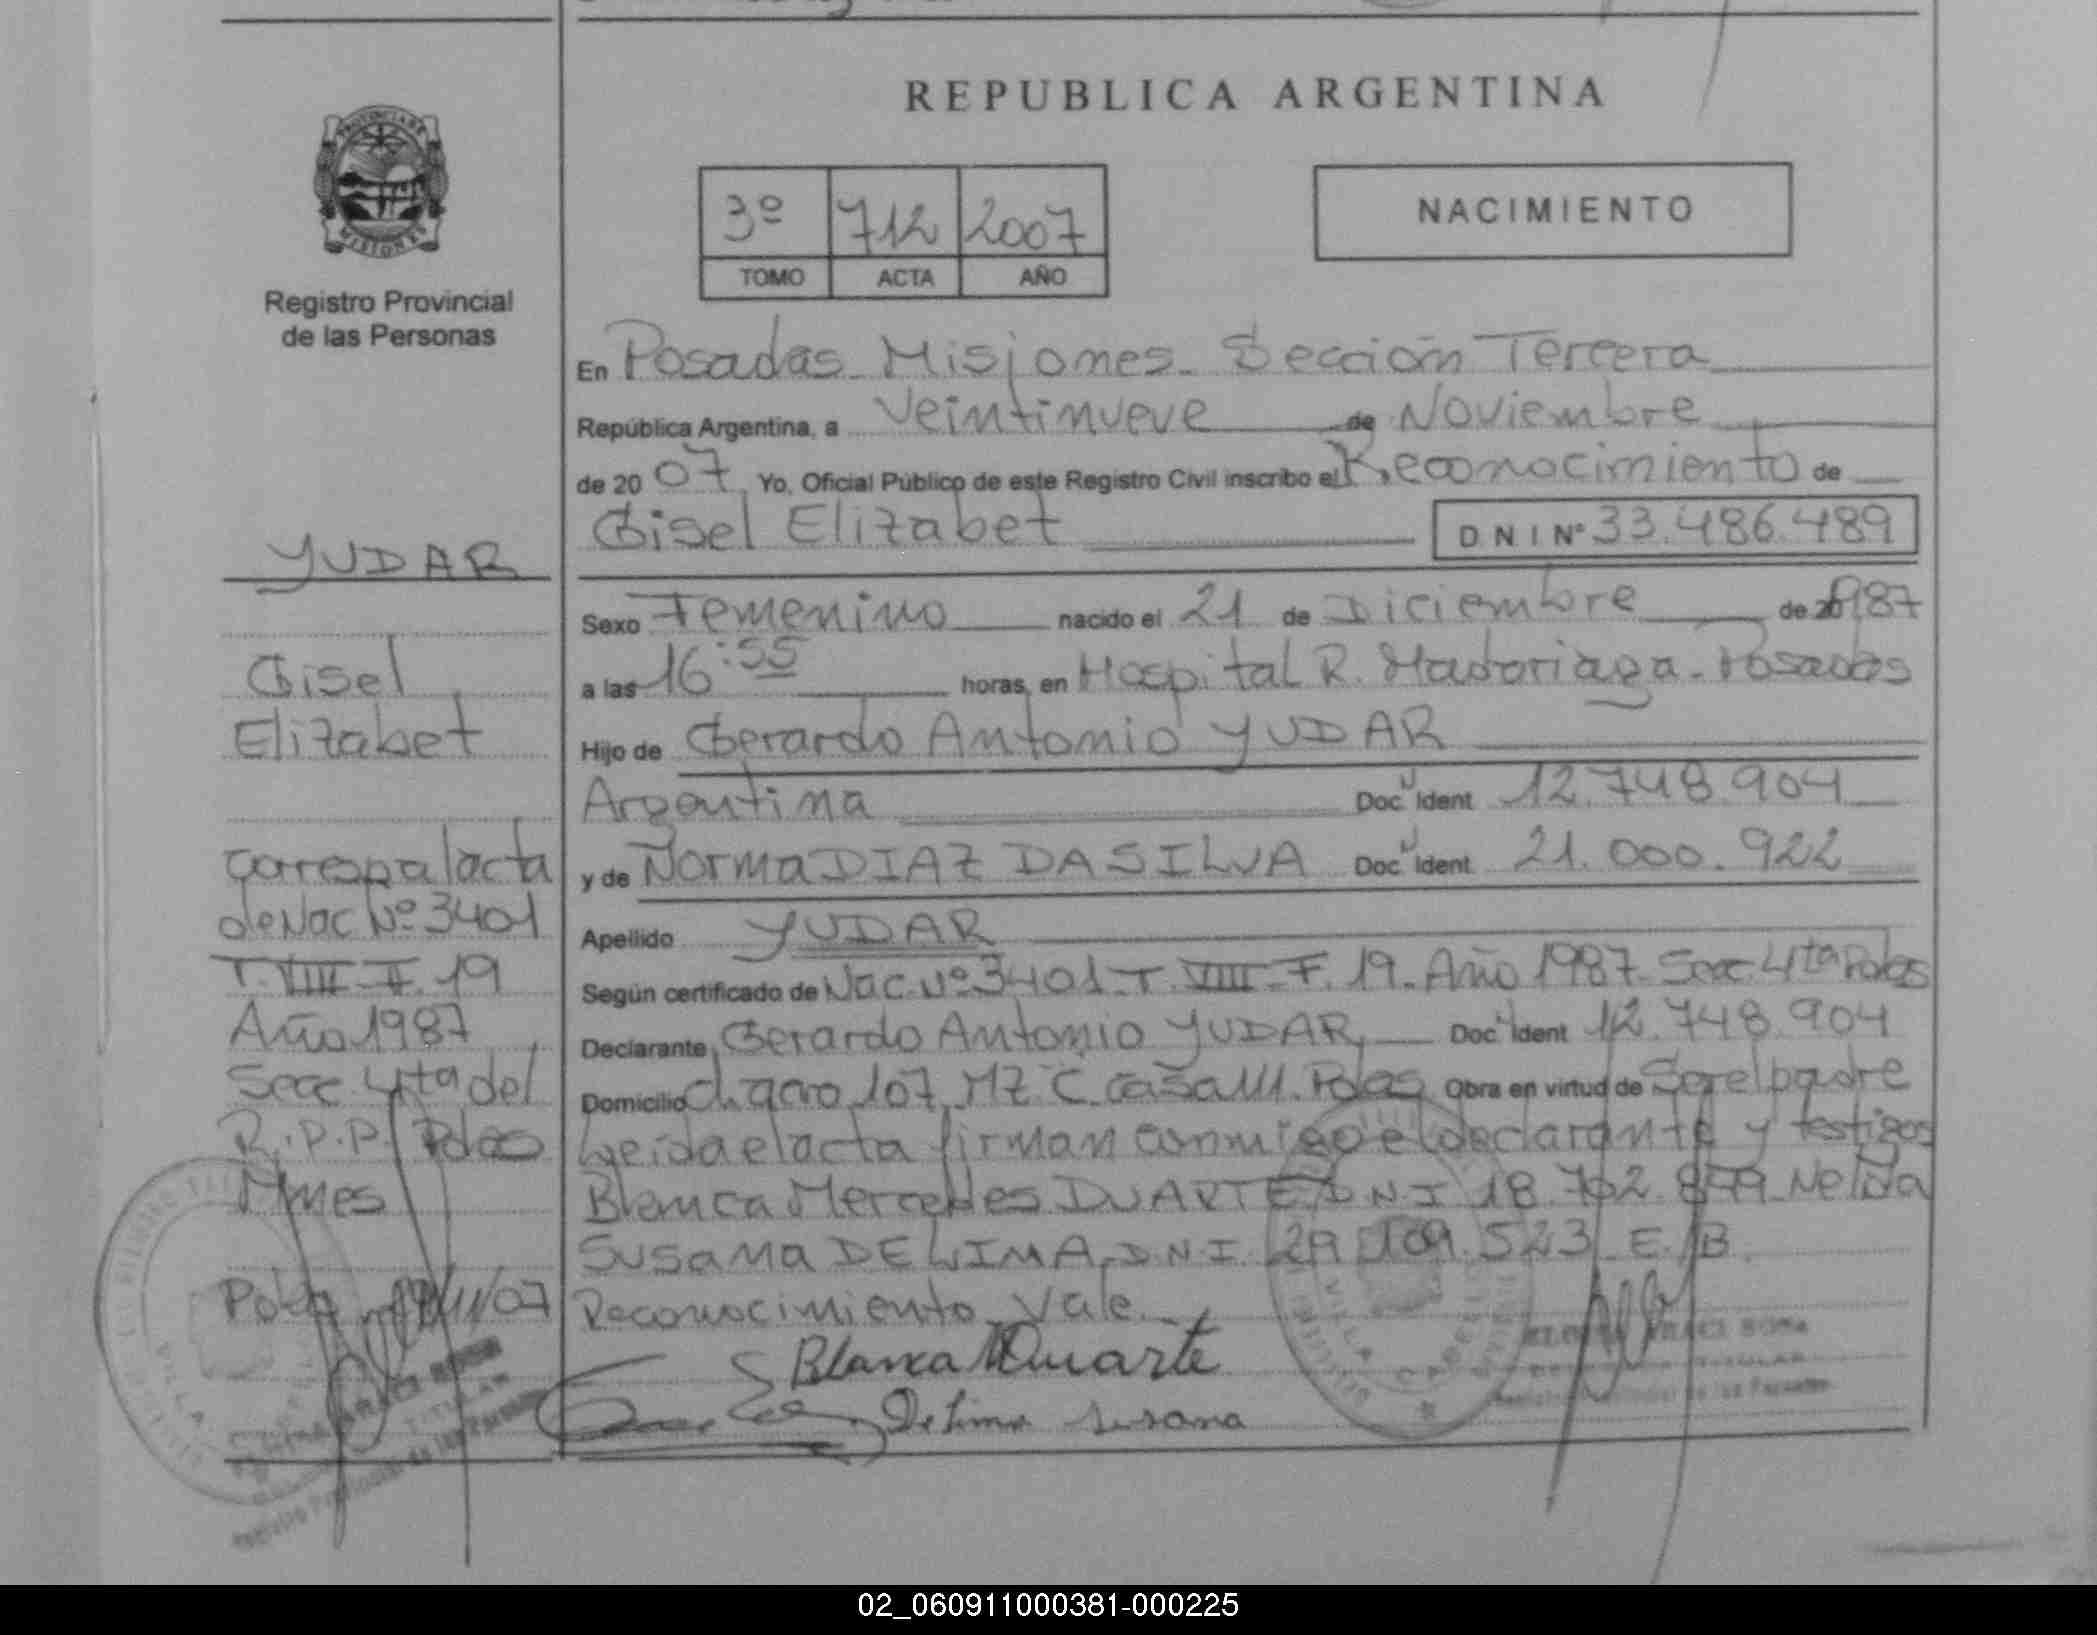 REPUBLICA ARGENTINA
PROVINCIA DE
MISIONES
Registro Provincial
de las Personas
3º 712 2007
TOMO ACTA AÑO
NACIMIENTO
En Posadas Misiones. Sección Tercera
República Argentina, a Veintinueve de Noviembre
de 2007 Yo, Oficial Público de este Registro Civil inscribo el Reconocimiento de
Gisel Elizabet DNI Nº 33.486.489
Sexo Femenino nacido el 21 de Diciembre de 1987
a las 16:55 horas, en Hospital R. Madariaga - Posadas
Hijo de Gerardo Antonio YUDAR
Argentina Doc. Ident 12.748.904
y de Norma DIAZ DA SILVA Doc. Ident 21.000.922
Apellido YUDAR
Según certificado de Nac. Nº 3401 - T. VIII - F. 19. Año 1987. Secc 4ta Pdas
Declarante Gerardo Antonio YUDAR Doc. Ident 12.748.904
Domicilio Ch. 107 MZ C casa Pdas Obra en virtud de Ser el padre
Leida el acta firman conmigo el declarante y testigos
Blanca Mercedes DUARTE D.N.I 18.762.879 Nelida
Susana DE LIMA D.N.I. 29.109.523 E/B
Reconocimiento Vale.
Blanca M Duarte
De Lima Susana
YUDAR
Gisel
Elizabet
Corresp al acta
de Nac Nº 3401
T. VIII F. 19
Año 1987
Secc 4ta del
R.P.P. Pdas
Mnes
Pdas 29/11/07
VILLA CABELLO
TITULAR
02_060911000381-000225